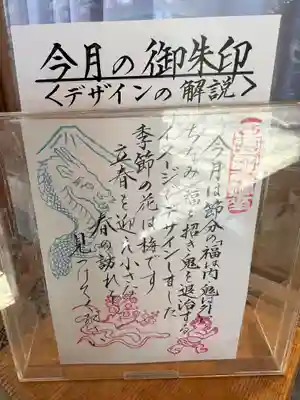 今月の御朱印
<デザインの解説>
今月は節分の「福は内 鬼は外」
ちなみ福を招き鬼を退治する
イメージでデザインしました
季節の花は梅です
立春を迎え小さな
春の訪れを
見つけて